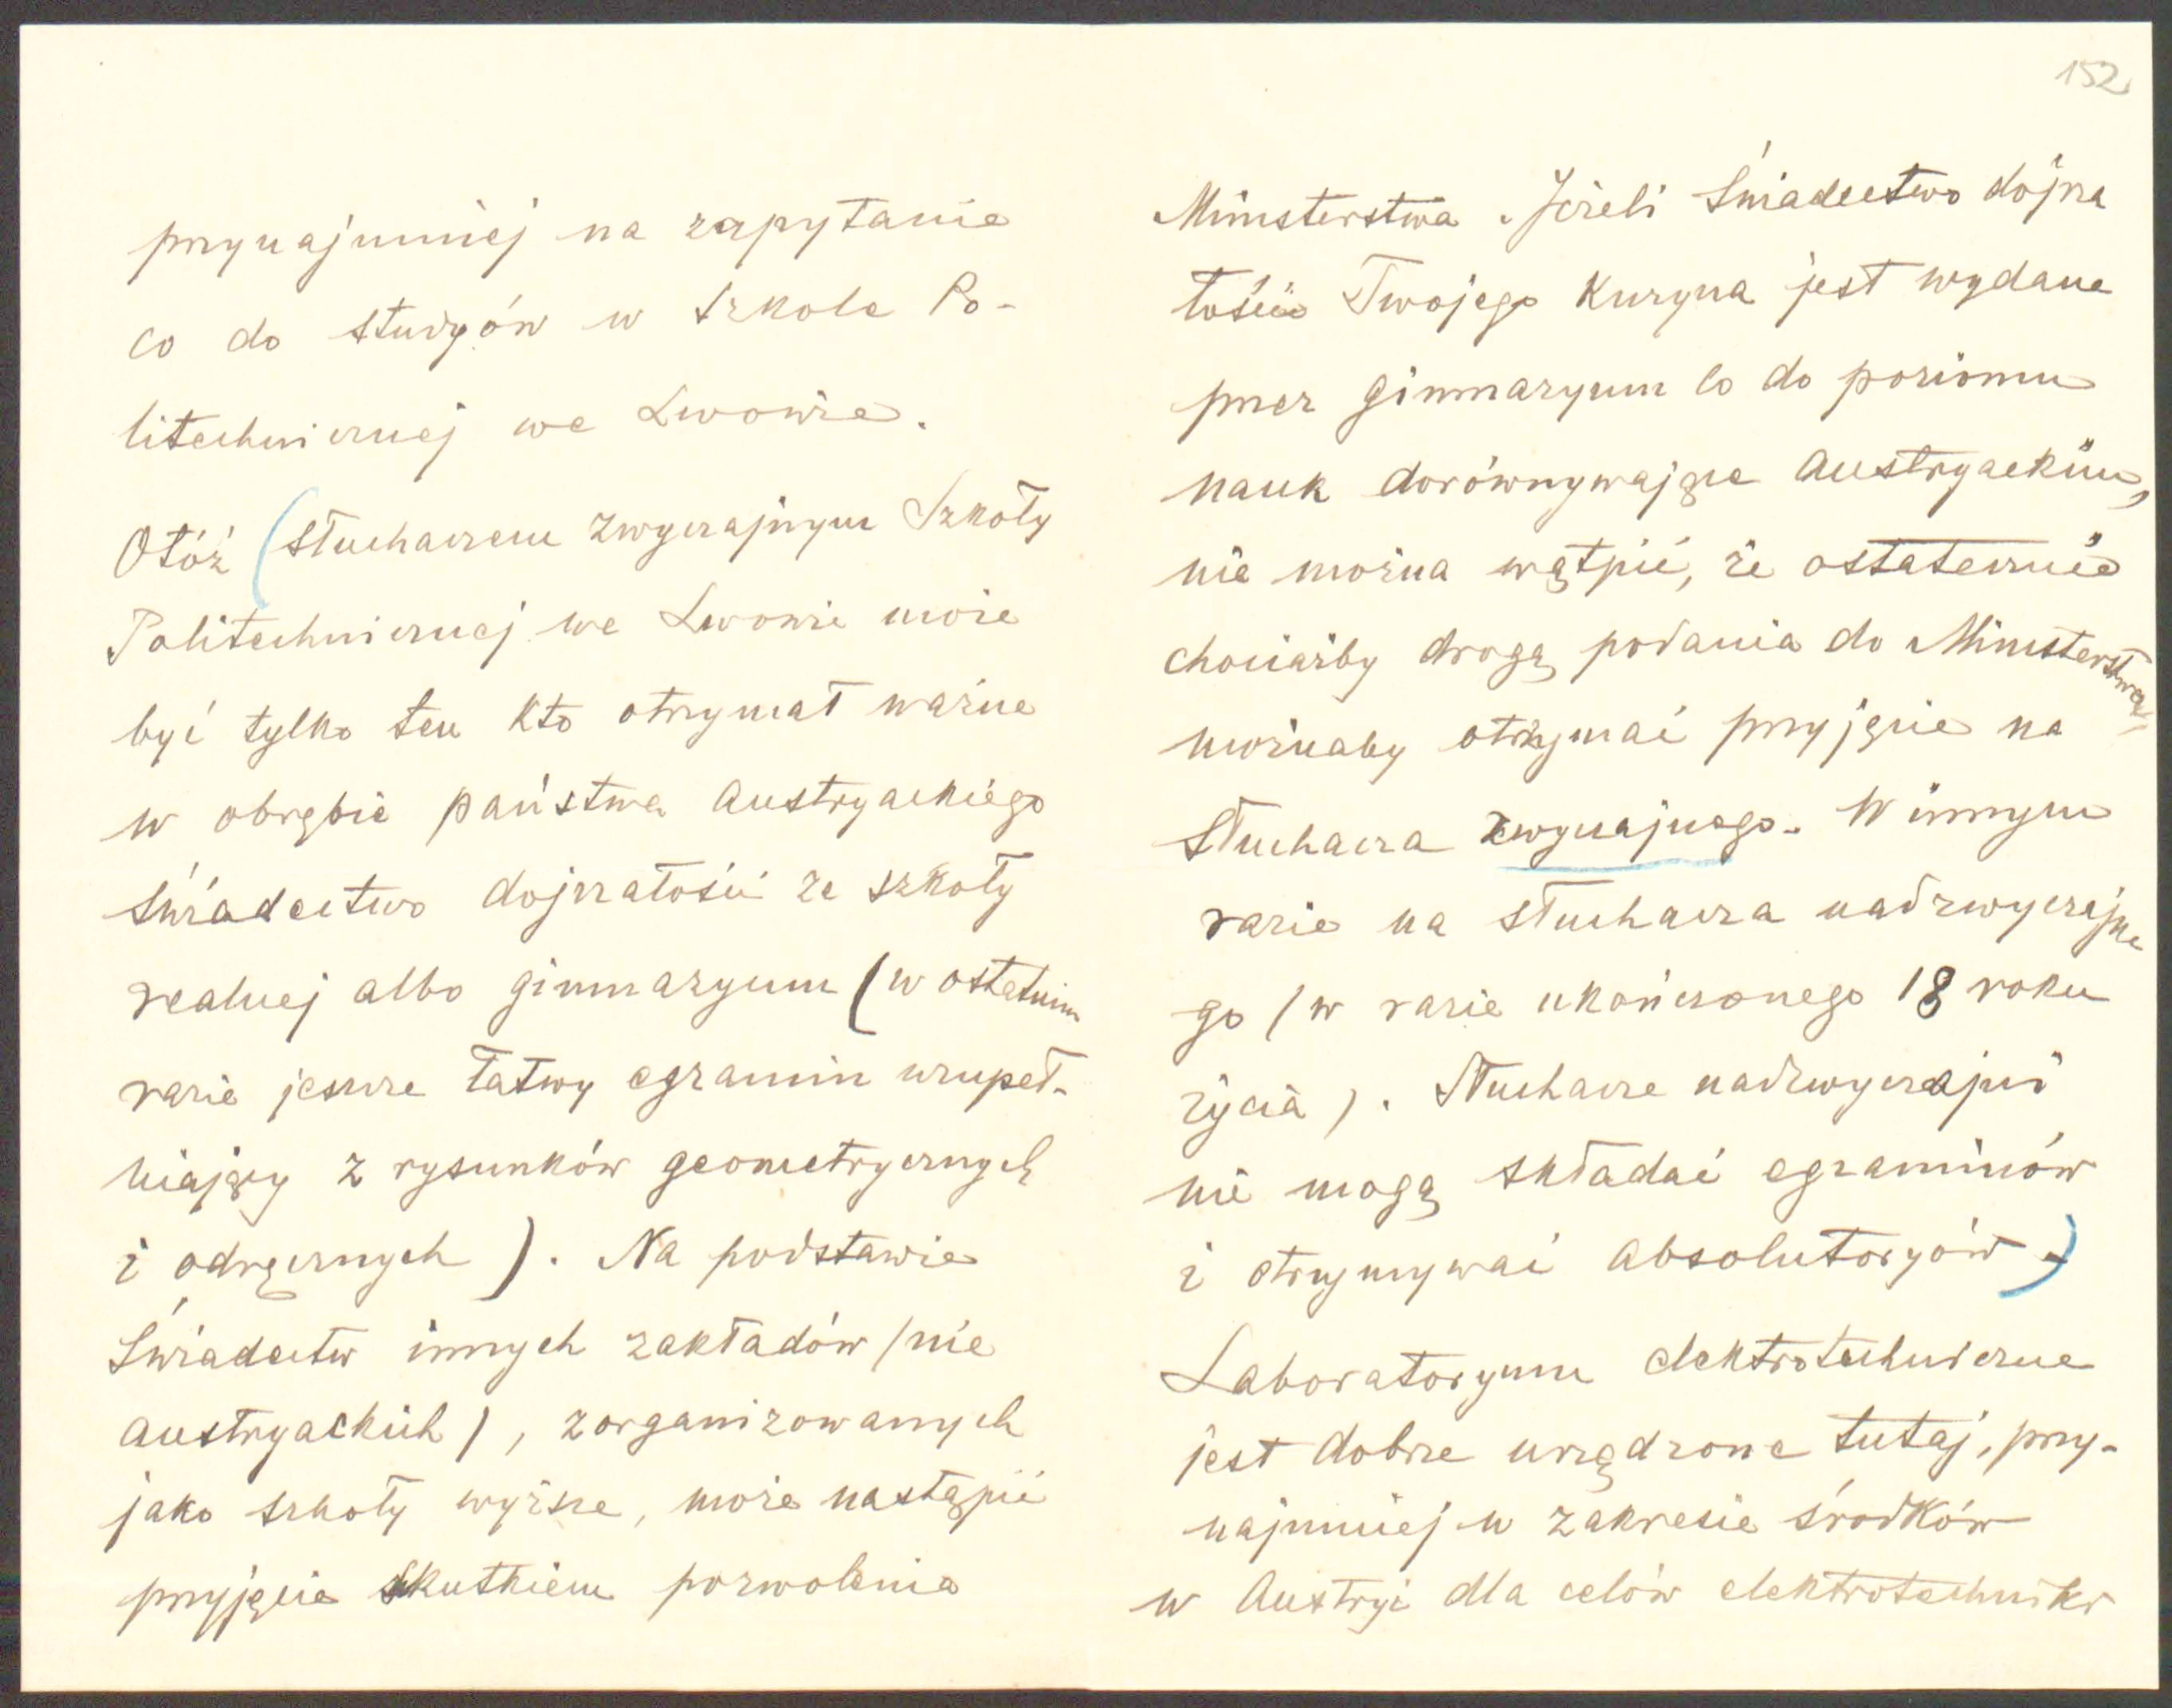 przynajmniej na zapytanie
co do studyów w Szkole Po-
litechnicznej we Lwowie.
Otóż (słuchaczem zwyczajnym Szkoły
Politechnicznej we Lwowie może
być tylko ten kto otrzymał ważne
w obrębie państwa austryackiego
świadectwo dojrzałości ze szkoły
realnej albo gimnazyum (w ostatnim
razie jeszcze łatwy egzamin uzupeł-
niający z rysunków geometrycznych
i odręcznych). Na podstawie
świadectw innych zakładów (nie
austryackich), zorganizowanych
jako szkoły wyższe, może nastąpić
przyjęcie skutkiem pozwolenia
152
Ministerstwa. Jeżeli świadectwo dojrza
łości Twojego Kuzyna jest wydane
przez gimnazyum co do poziomu
nauk dorównywające austryackim,
nie można wątpić, że ostatecznie
chociażby drogą podania do Ministerstwa
możnaby otrzymać przyjęcie na
słuchacza zwyczajnego. W innym
razie na słuchacza nadzwyczajne
go (w razie ukończonego 18 roku
życia). Słuchacze nadzwyczajni
nie mogą składać egzaminów
i otrzymywać absolutoryów.)
Laboratoryum elektrotechniczne
jest dobrze urządzone tutaj, przy-
najmniej w zakresie środków
w Austryi dla celów elektrotechniki